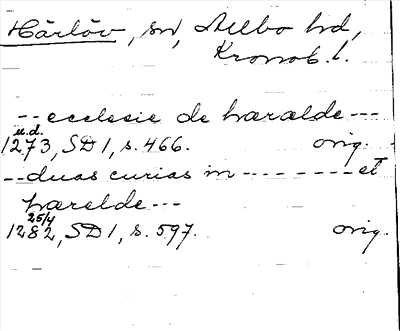 Härlöv, sn, Allbo hd,
Kronob. l.
-- ecclesie de hærælde ---
u.d.
1273, SD 1, s. 466. orig.
-- duas curias in -------- et
hærelde ---
25/4
1282, SD 1, s. 597. orig.